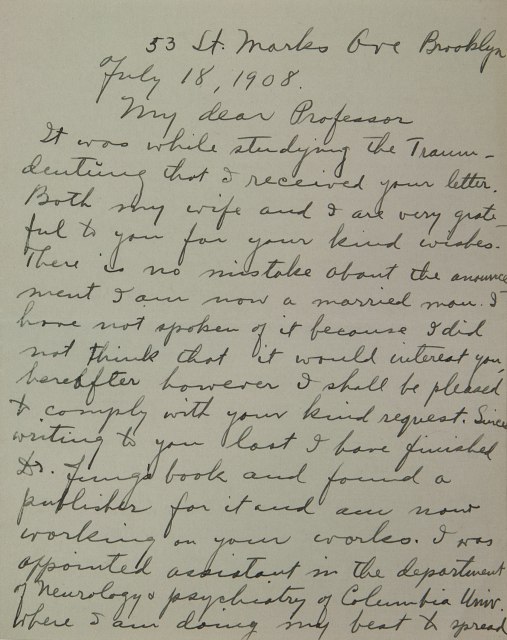 53 St. Marks Ave Brooklyn
July 18, 1908.
My dear Professor
It was while studying the Traum-
deutung that I received your letter.
Both my wife and I are very grate-
ful to you for your kind wishes.
There is no mistake about the anounce-
ment I am now a married man. I
have not spoken of it because I did
not think that it would interest you,
hereafter however I shall be pleased
to comply with your kind request. Since
writing to you last I have finished
Dr. Jungs book and found a
publisher for it and am now
working on your works. I was
appointed assistant in the department
of Neurology & psychiatry of Columbia Univ.
where I am doing my best to spread